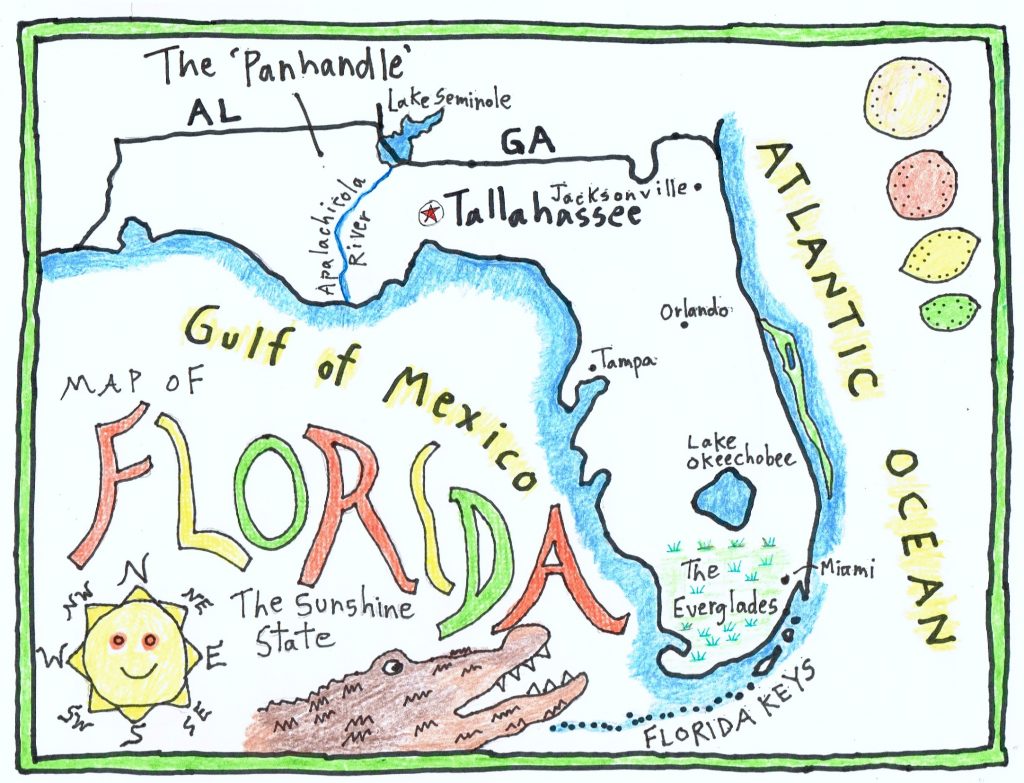 The 'Panhandle'
AL
Lake Seminole
GA
Apalachicola
River
Tallahassee
Jacksonville
ATLANTIC
OCEAN
Orlando
Gulf of Mexico
Tampa
MAP OF
FLORIDA
Lake
Okeechobee
The
Everglades
Miami
The Sunshine
State
N
NE
E
SE
S
SW
W
NW
FLORIDA KEYS